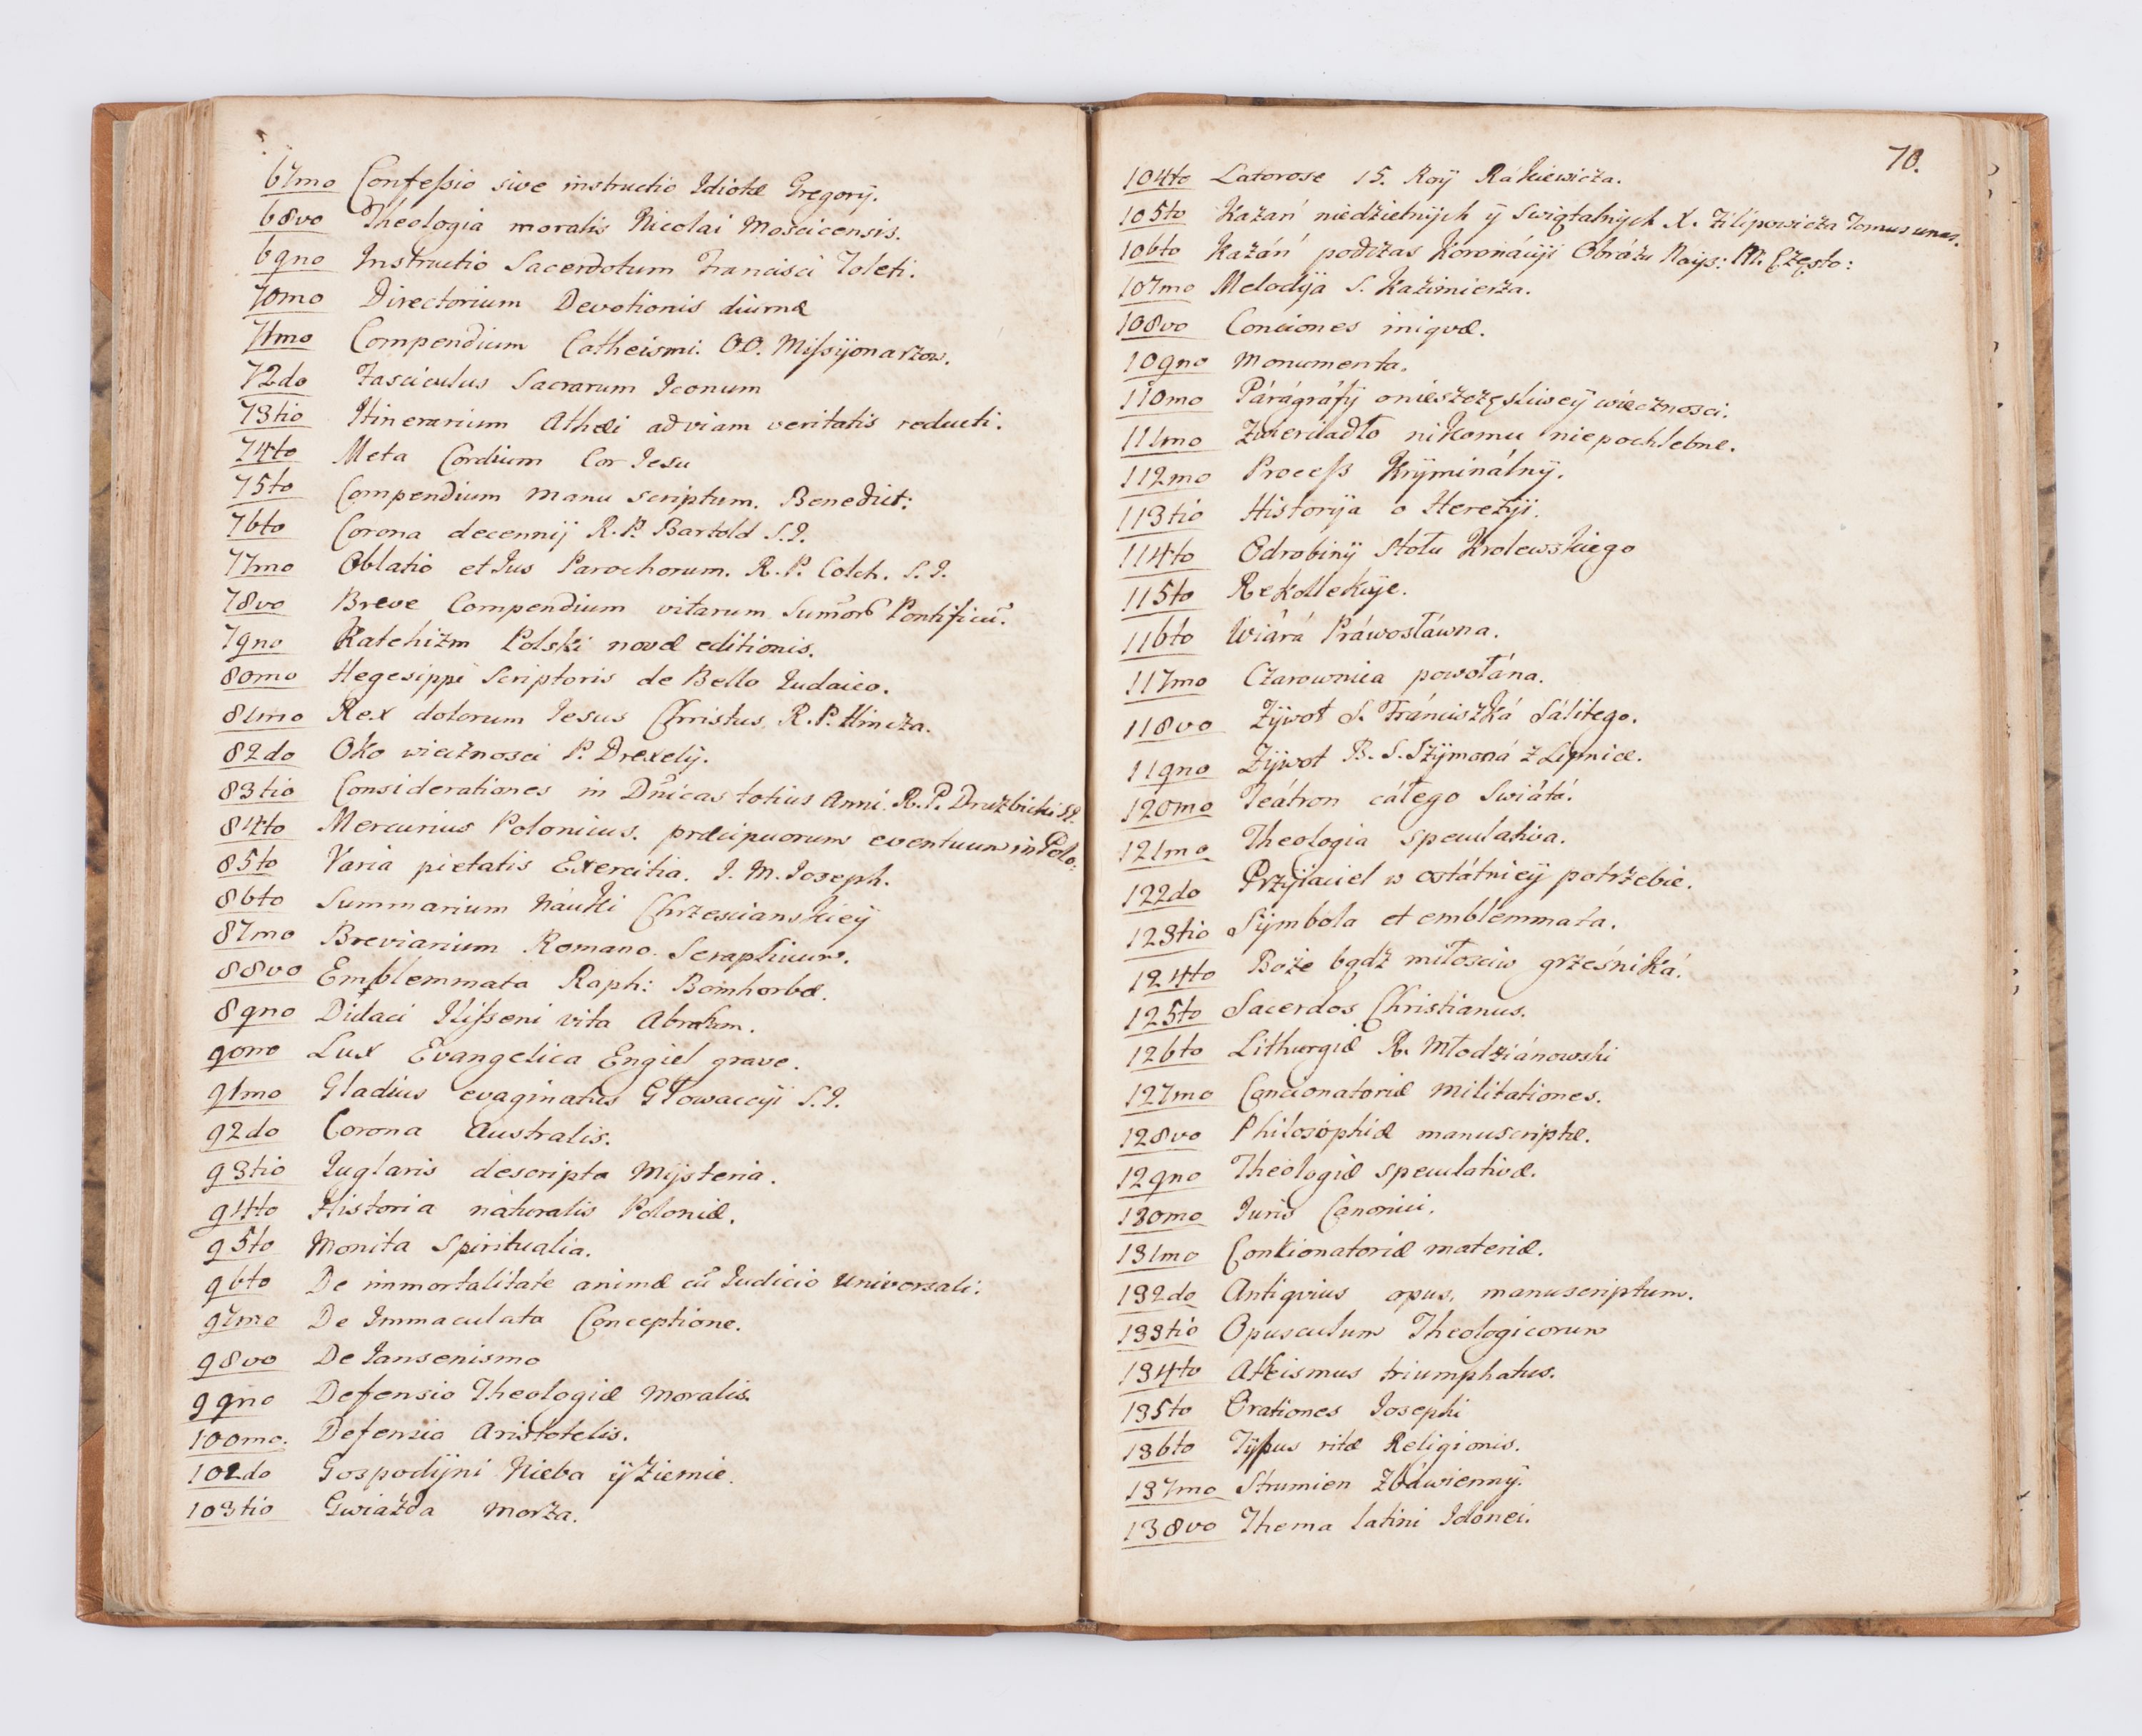 67mo Confessio sive instructio Idiotæ Gregorÿ.
68vo Theologia moralis Nicolai Moscicensis.
69no Instructio Sacerdotum Francisci Toleti.
70mo Directorium Devotionis diurnæ
71mo Compendium Catheismi. OO. Missÿonarzow.
72do Fasciculus Sacrarum Iconum
73tio Itinerarium Athæi ad viam veritatis reducti.
74to Meta Cordium Cor Iesu
75to Compendium manu scriptum. Benedict:
76to Corona decennij R. P. Bartold S. I.
77mo Oblatio et Ius Parochorum. R. P. Colch. S. I.
78vo Breve Compendium vitarum Pontificũ.
79no Katehizm Polski novæ editionis.
80mo Hegesippi Scriptoris de Bello Iudaico.
81mo Rex dolorum Iesus Christus. R. P. Hincza.
82do Oko wiecznosci P. Drexelÿ.
83tio Considerationes in Dnicas totius Anni. R. P. Druzbicki S I.
84to Mercurius Polonicus. præcipuorum eventuum in Polo:
85to Varia pietatis Exercitia. I. M. Ioseph.
86to Summarium Náuki Chrzescianskieÿ
87mo Breviarium Romano Seraphicum.
88vo Emblemmata Raph:
89no Didaci vita Abrahm.
90mo Lux Evangelica Engiel grave.
91mo Gladius evaginatus Głowaccÿi S. I.
92do Corona Australis.
93tio Iuglaris descripta Mÿsteria.
94to Historia naturalis Poloniæ.
95to Monita Spiritualia.
96to De immortalitate animæ cũ Iudicio universali.
97mo De Immaculata Conceptione.
98vo De Iansenismo
99no Defensio Theologiæ Moralis.
100mo. Defensio Aristotelis.
102do Gospodÿni Nieba ÿ Ziemie.
103tio Gwiazda Morza.
70.
104to Latorose 15. Roÿ Rákiewicza.
105to Kazań niedzielnÿch ÿ Swiątalnÿch X. Filipowicza Tomus unus.
106to Kazáń podczas Koronácÿi Obrázu Naÿs: M. Często:
107mo Melodÿa S. Kazimierza.
108vo Conciones iniqvæ.
109no Monumenta.
110mo Párágráfÿ onieszczęsliweÿ wiecznosci.
111mo Zwierciadło nikomu niepochlebne.
112mo Process Krÿminálnÿ.
113tio Historÿa o Herezÿi.
114to Odrobinÿ Stołu Krolewskiego
115to Rekollekcÿe.
116to Wiárá Práwosłáwna.
117mo Czarownica powołána.
118vo Zÿwot S. Fránciszká Sálitego.
119no Zÿwot B. S. Szÿmoná z Lipnice.
120mo Teátron cáłego Swiátá.
121mo Theologia speculativa.
122do Przÿiaciel w ostátnieÿ potrzebie.
123tio Sÿmbola et emblemmata.
124to Boże bądź miłosciw grześniká.
125to Sacerdos Christianus.
126to Lithurgiæ R. Młodziánowski
127mo Concionatoriæ militationes.
128vo Philosophiæ manuscriptæ.
129no Theologiæ speculativæ.
130mo Iuris Canonici.
131mo Conkionatoriæ materiæ.
132do Antiqvius opus. manuscriptum.
133tio Opusculum Theologicorum
134to Atheismus triumphatus.
135to Orationes Iosephi
136to Tÿpus ritæ Religionis.
137mo Strumien Zbáwiennÿ.
138vo Thema latini Idonei.